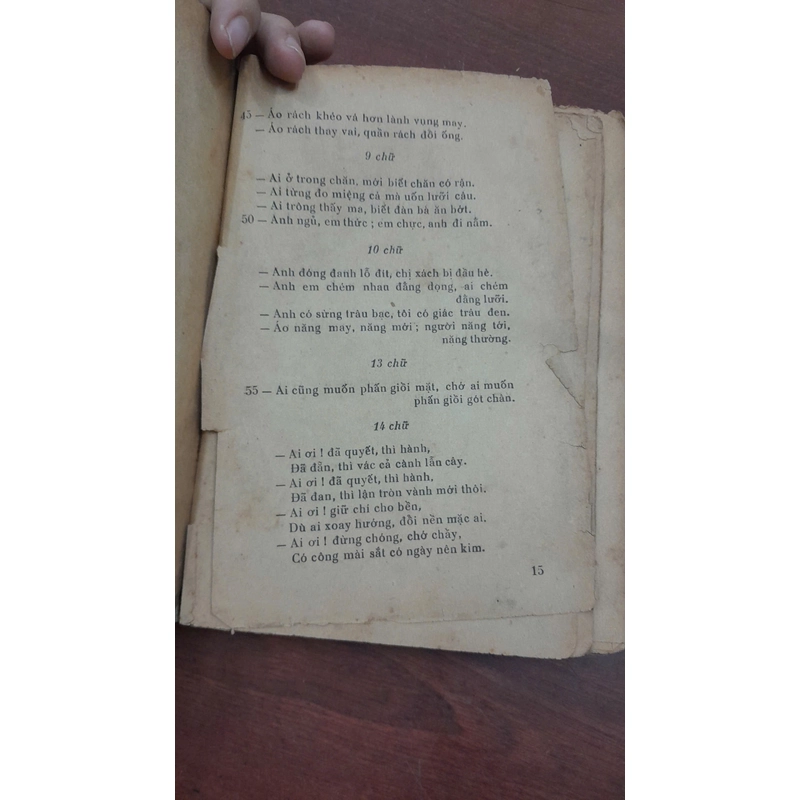 45 — Áo rách khéo vá hơn lành vụng may.
— Áo rách thay vai, quần rách đổi ống.
9 chữ
— Ai ở trong chăn, mới biết chăn có rận.
— Ai từng đo miệng cá mà uốn lưỡi câu.
— Ai trông thấy ma, biết đàn bà ăn bớt.
50 — Anh ngủ, em thức ; em chực, anh đi nằm.
10 chữ
— Anh đóng đanh lỗ đít, chị xách bị đầu hè.
— Anh em chém nhau đằng dọng, ai chém
đằng lưỡi.
— Anh có sừng trâu bạc, tôi có giác trâu đen.
— Áo năng may, năng mới ; người năng tới,
năng thường.
13 chữ
55 — Ai cũng muốn phấn giồi mặt, chớ ai muốn
phấn giồi gót chân.
14 chữ
— Ai ơi ! đã quyết, thì hành,
Đã đẵn, thì vác cả cành lẫn cây.
— Ai ơi ! đã quyết, thì hành,
Đã đan, thì lận tròn vành mới thôi.
— Ai ơi ! giữ chí cho bền,
Dù ai xoay hướng, đổi nền mặc ai.
— Ai ơi ! đừng chóng, chớ chầy,
Có công mài sắt có ngày nên kim.
15